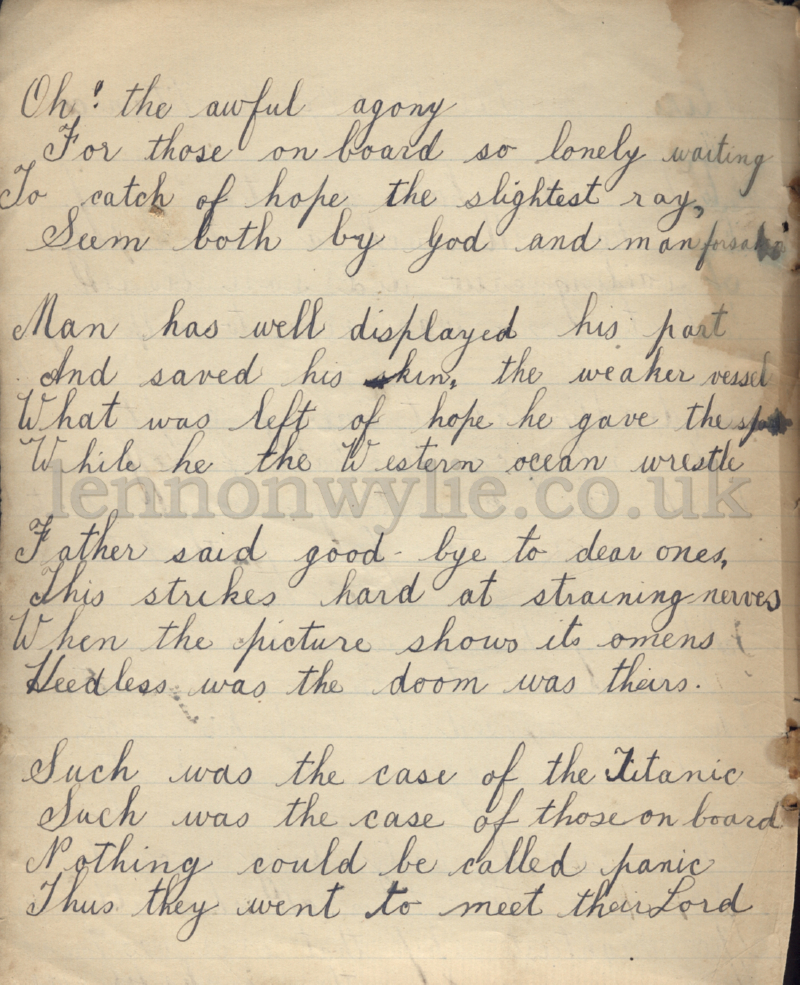 Oh! the awful agony
For those on board so lonely waiting
To catch of hope the slightest ray,
Seem both by God and man forsaken
Man has well displayed his part
And saved his skin, the weaker vessel
What was left of hope he gave the
While he the Western ocean wrestle
lennonwylie.co.uk
Father said good-bye to dear ones,
This strikes hard at straining nerves
When the picture shows its omens
Heedless was the doom was theirs.
Such was the case of the Titanic
Such was the case of those on board
Nothing could be called panic
Thus they went to meet their Lord